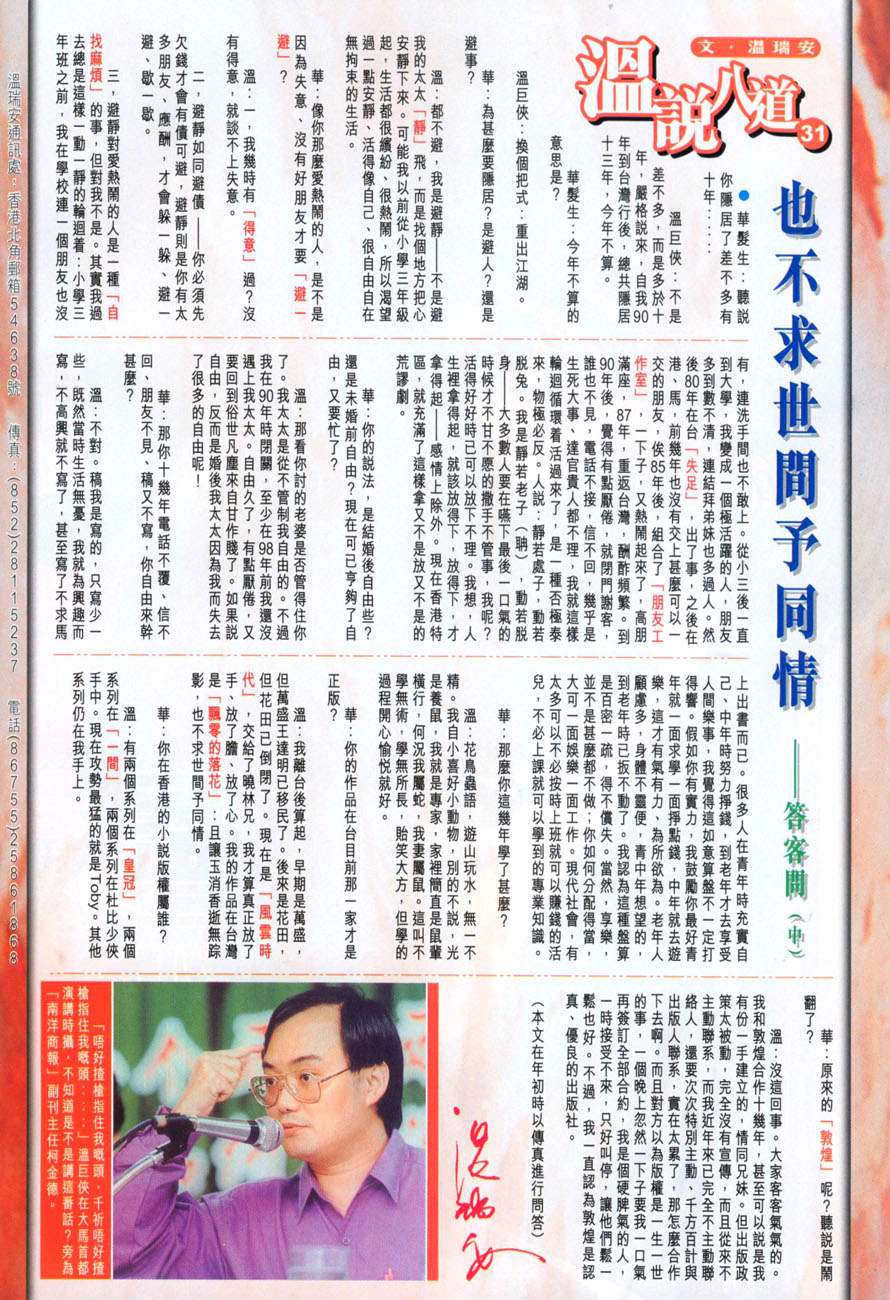 文．溫瑞安
溫說八道
31
也不求世間予同情
——答客問（中）
●華髮生：聽說
你隱居了差不多有
十年⋯⋯
溫巨俠：不是
差不多，而是多於十
年，嚴格說來，自我90
年到台灣行後，總共隱居
十三年，今年不算。
華髮生：今年不算的
意思是？
溫巨俠：換個把式：重出江湖。
華：為甚麼要隱居？是避人？還是
避事？
溫：都不避，我是避靜——不是避
我的太太「靜」飛，而是找個地方把心
安靜下來。可能我以前從小學三年級
起，生活都很繽紛、很熱鬧，所以渴望
過一點安靜、活得像自己、很自由自在
無拘束的生活。
華：像你那麼愛熱鬧的人，是不是
因為失意、沒有好朋友才要「避一
避」？
溫：一，我幾時有「得意」過？沒
有得意，就談不上失意。
二，避靜如同避債——你必須先
欠錢才會有債可避，避靜則是你有太
多朋友、應酬，才會躲一躲、避一
避、歇一歇。
三，避靜對愛熱鬧的人是一種「自
找麻煩」的事，但對我不是。其實我過
去總是這樣一動一靜的輪迴着：小學三
年班之前，我在學校連一個朋友也沒
有，連洗手間也不敢上。從小三後一直
到大學，我變成一個極活躍的人，朋友
多到數不清，連結拜弟妹也多過人。然
後80年在台「失足」，出了事，之後在
港、馬，前幾年也沒有交上甚麼可以一
交的朋友，俟85年後，組合了「朋友工
作室」，一下子，又熱鬧起來了，高朋
滿座，87年，重返台灣，酬酢頻繁。到
90年後，覺得有點厭倦，就閉門謝客，
誰也不見，電話不接，信不回，幾乎是
生死大事、達官貴人都不理，我就這樣
輪迴循環着活過來了，是一種否極泰
來，物極必反。人說：靜若處子，動若
脫兔。我是靜若老子（聃），動若脫
身——大多數人要在嚥下最後一口氣的
時候才不甘不愿的撒手不管事，我呢？
活得好好時已可以放下不理。我想，人
生裡拿得起，就該放得下，放得下，才
拿得起——感情上除外。現在香港特
區，就充滿了這樣拿又不是放又不是的
荒謬劇。
華：你的說法，是結婚後自由些？
還是未婚前自由？現在可已亨夠了自
由，又要忙了？
溫：那看你討的老婆是否管得住你
了。我太太是從不管制我自由的。不過
我在90年時閉關，至少在98年前我還沒
遇上我太太。自由久了，有點厭倦，又
要回到俗世凡塵來自甘作賤了。如果說
自由，反而是婚後我太太因為我而失去
了很多的自由呢！
華：那你十幾年電話不覆、信不
回、朋友不見、稿又不寫，你自由來幹
甚麼？
溫：不對。稿我是寫的，只寫少一
些，既然當時生活無憂，我就為興趣而
寫，不高興就不寫了，甚至寫了不求馬
上出書而已。很多人在青年時充實自
己、中年時努力掙錢，到老年才去享受
人間樂事，我覺得這如意算盤不一定打
得響。假如你有實力，我鼓勵你最好青
年就一面求學一面掙點錢，中年就去遊
樂，這才有氣有力、為所欲為。老年人
顧慮多，身體不靈便，青中年想望的，
到老年時已扳不動了。我認為這種盤算
是百密一疏，得不償失。當然，享樂，
並不是甚麼都不做；你如何分配得當，
大可一面娛樂一面工作。現代社會，有
太多可以不必按時上班就可以賺錢的活
兒，不必上課就可以學到的專業知識。
華：那麼你這幾年學了甚麼？
溫：花鳥蟲語，遊山玩水，無一不
精。我自小喜好小動物，別的不說，光
是養鼠，我就是專家，家裡簡直是鼠輩
橫行，何況我屬蛇，我妻屬鼠。這叫不
學無術，學無所長，貽笑大方，但學的
過程開心愉悅就好。
華：你的作品在台目前那一家才是
正版？
溫：我離台後算起，早期是萬盛，
但萬盛王達明已移民了。後來是花田，
但花田已倒閉了。現在是「風雲時
代」，交給了曉林兄，我才算真正放了
手、放了膽、放了心。我的作品在台灣
是「飄零的落花」：且讓玉消香逝無踪
影，也不求世間予同情。
華：你在香港的小說版權屬誰？
溫：有兩個系列在「皇冠」，兩個
系列在「一間」，兩個系列在杜比少俠
手中。現在攻勢最猛的就是Toby。其他
系列仍在我手上。
華：原來的「敦煌」呢？聽說是鬧
翻了？
溫：沒這回事。大家客客氣氣的。
我和敦煌合作十幾年，甚至可以說是我
有份一手建立的，情同兄妹。但出版政
策太被動，完全沒有宣傳，而且從來不
主動聯系，而我近年來已完全不主動聯
絡人，還要次次特別主動、千方百計與
出版人聯系，實在太累了，那怎麼合作
下去啊。而且對方以為版權是一生一世
的事，一個晚上忽然一下子要我一口氣
再簽訂全部合約，我是個硬脾氣的人，
一時接受不來，只好叫停，讓他們鬆一
鬆也好。不過，我一直認為敦煌是認
真、優良的出版社。
（本文在年初時以傳真進行問答）
溫瑞安
「唔好揸槍指住我嘅頭，千祈唔好揸
槍指住我嘅頭⋯⋯」溫巨俠在大馬首都
演講時攝，不知道是不是講這番話？旁為
「南洋商報」副刊主任柯金德。
溫瑞安通訊處：香港北角郵箱54638號　傳真：(852)28115237　電話(86755)25861868